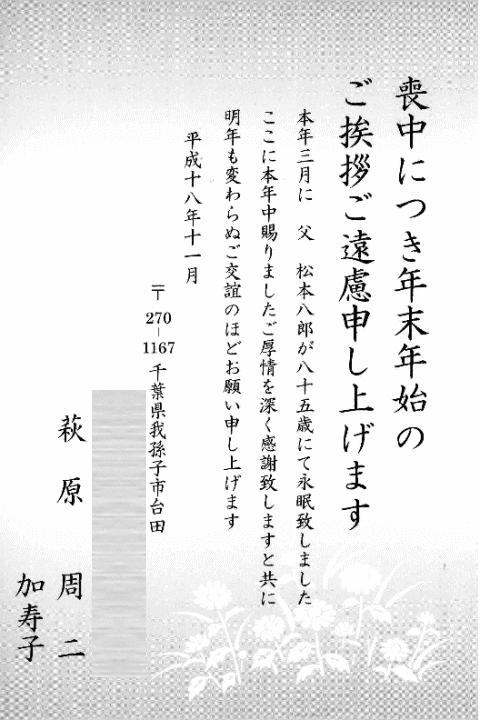 喪中につき年末年始の
ご挨拶ご遠慮申し上げます
本年三月に　父　松本八郎が八十五歳にて永眠致しました
ここに本年中賜りましたご厚情を深く感謝致しますと共に
明年も変わらぬご交誼のほどお願い申し上げます
平成十八年十一月
〒270-1167 千葉県我孫子市台田
萩原　周二
加寿子